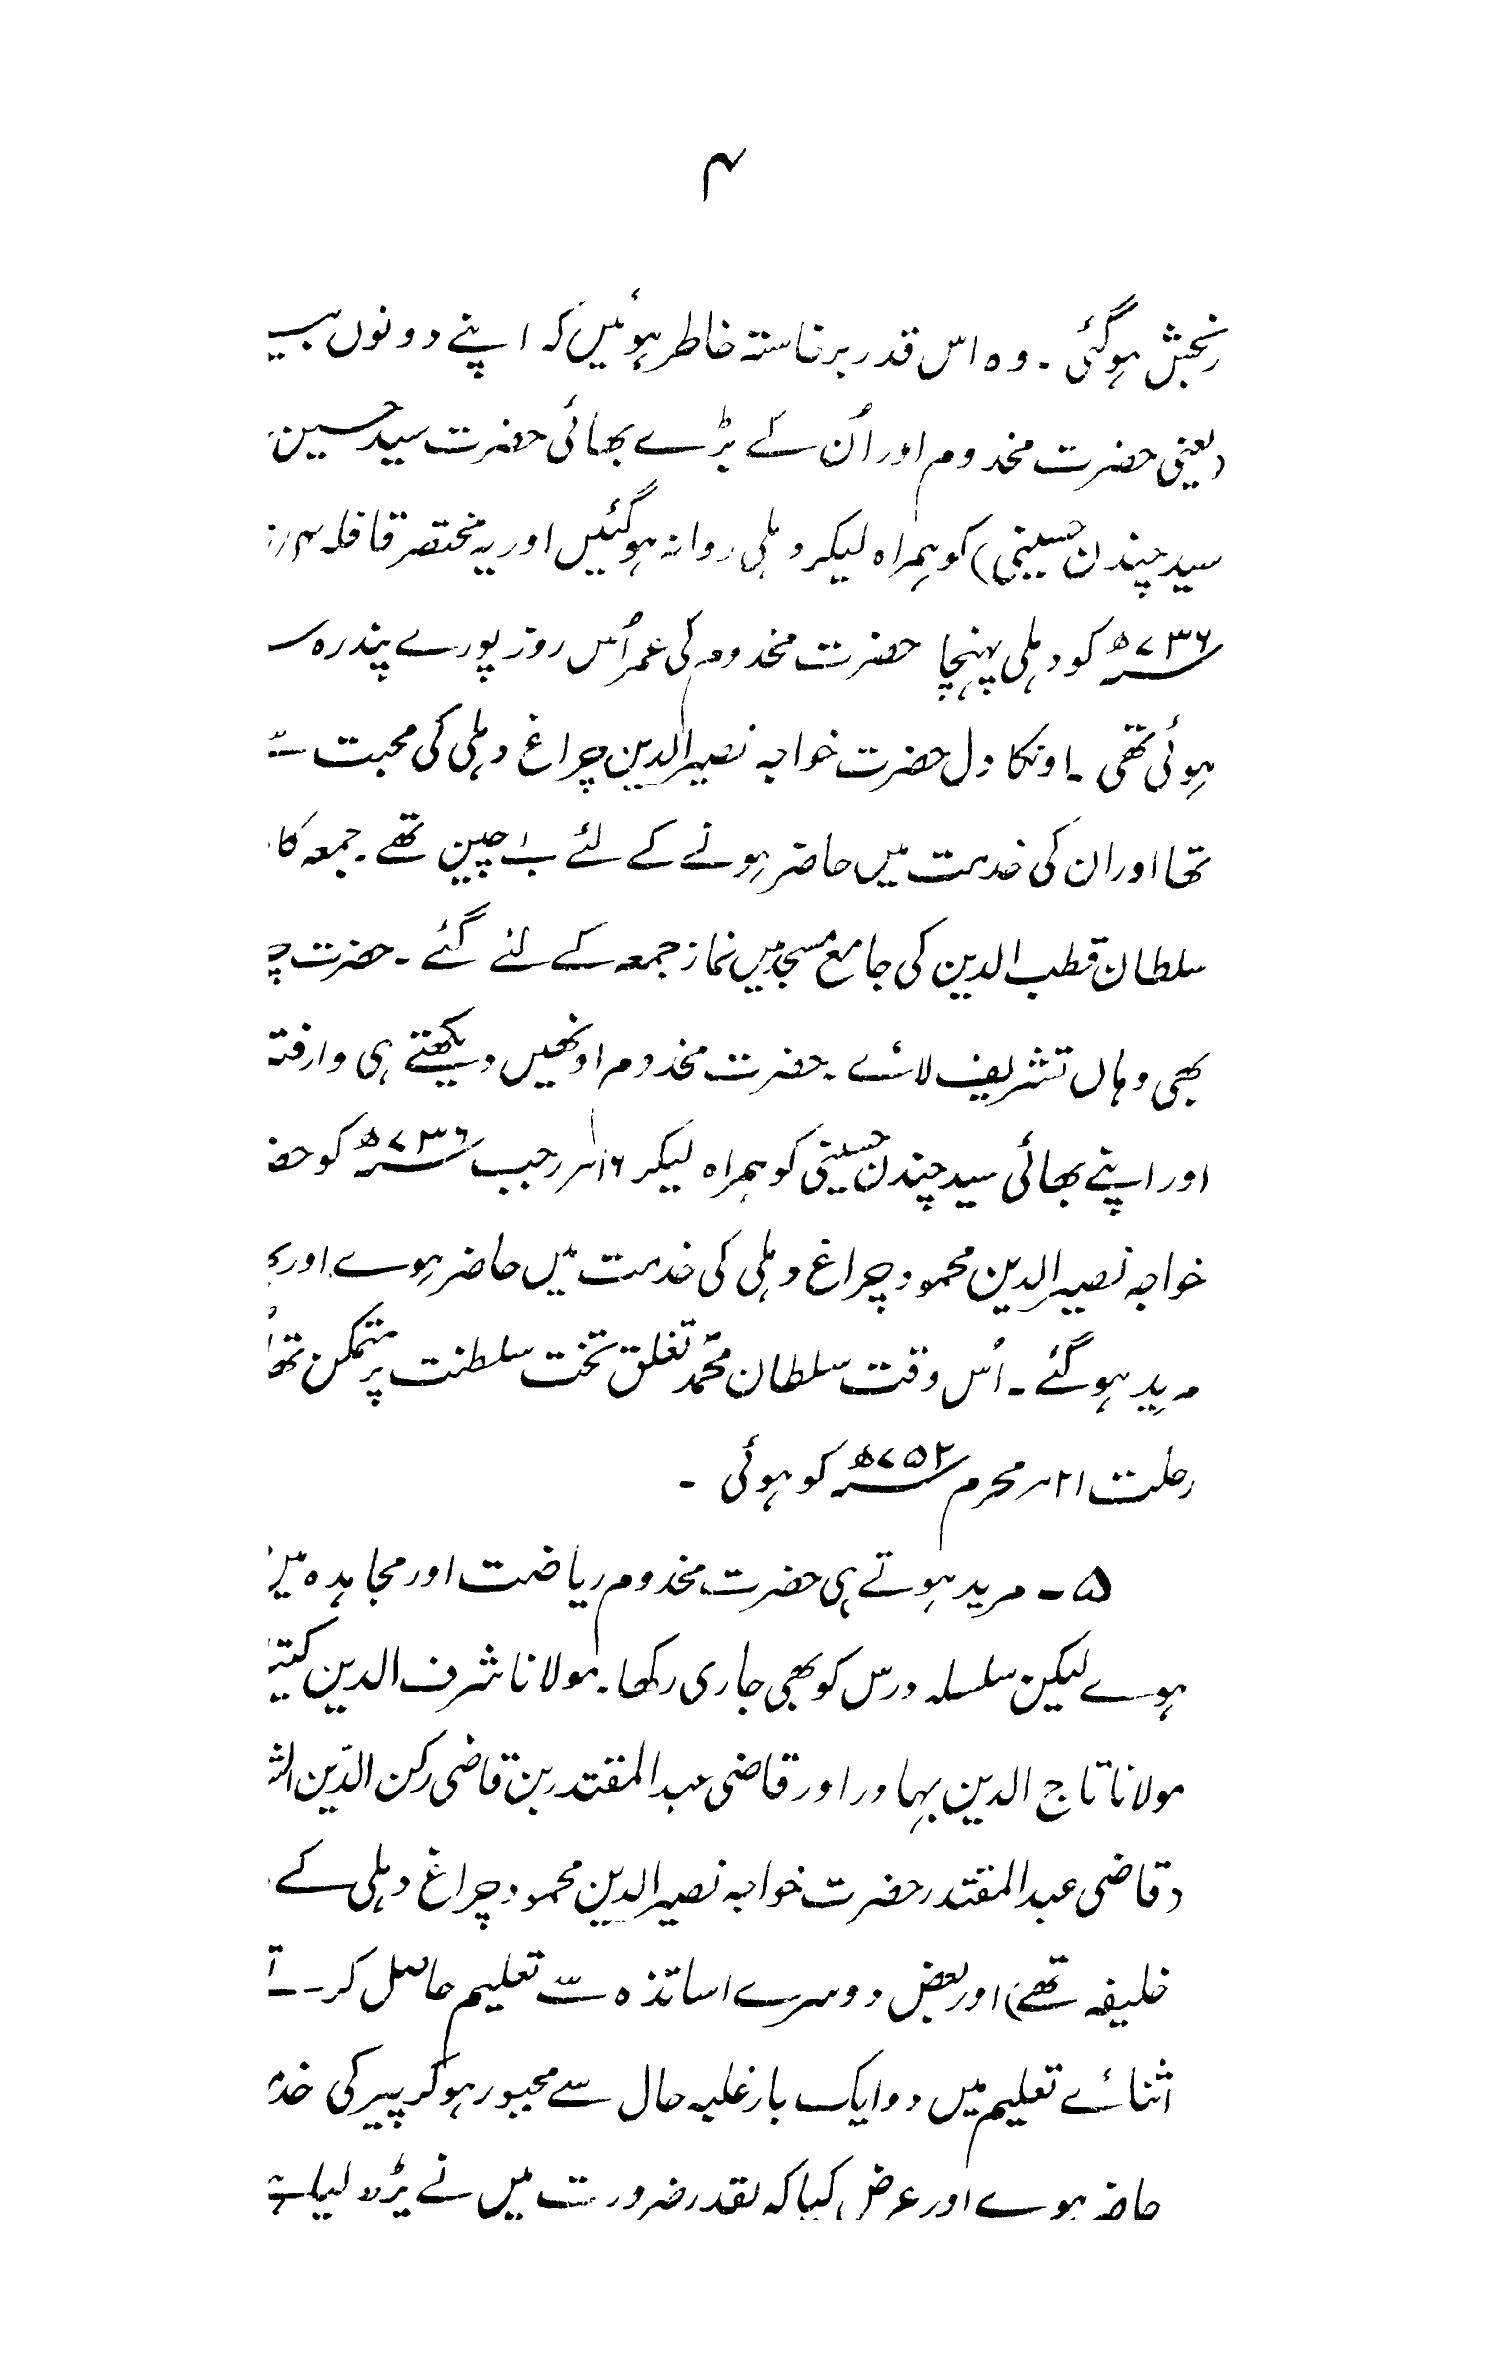 ۴
رنجش ہوگئی ۔ وہ اس قدر برخاستہ خاطر ہوئیں کہ اپنے دونوں
(یعنی حضرت مخدوم اور اُن کے بڑے بھائی حضرت سید حسین
سید چندن حسینی) کو ہمراہ لیکر دہلی روانہ ہوگئیں اور یہ مختصر قافلہ ۴ر
۷۳۶ھ کو دہلی پہنچا حضرت مخدوم کی عمر اُس روز پورے پندرہ
ہوئی تھی ۔ اونکا دل حضرت خواجہ نصیر الدین چراغ دہلی کی محبت سے
تھا اور ان کی خدمت میں حاضر ہونے کے لئے بے چین تھے ۔ جمعہ کا
سلطان قطب الدین کی جامع مسجد میں نماز جمعہ کے لئے گئے ۔ حضرت
بھی وہاں تشریف لائے ۔ حضرت مخدوم اونھیں دیکھتے ہی وارفتہ
اور اپنے بھائی سید چندن حسینی کو ہمراہ لیکر ۱۶ر رجب ۷۳۶ھ کو
خواجہ نصیر الدین محمود چراغ دہلی کی خدمت میں حاضر ہوے اور
مرید ہوگئے ۔ اُس وقت سلطان محمّد تغلق تخت سلطنت پر متمکن تھا
رحلت ۲۱ر محرم ۷۵۲ھ کو ہوئی ۔
۵ ۔ مرید ہوتے ہی حضرت مخدوم ریاضت اور مجاہدہ میں
ہوے لیکن سلسلہ درس کو بھی جاری رکھا ۔ مولانا شرف الدین
مولانا تاج الدین بہادر اور قاضی عبد المقتدر بن قاضی رکن الدّین
(قاضی عبد المقتدر حضرت خواجہ نصیر الدین محمود چراغ دہلی کے
خلیفہ تھے) اور بعض دوسرے اساتذہ سے تعلیم حاصل کرتے
اثنائے تعلیم میں دو ایک بار غلبہ حال سے مجبور ہوکر پیر کی
حاضر ہوے اور عرض کیا کہ بقدر ضرورت میں نے پڑھ لیا ہے